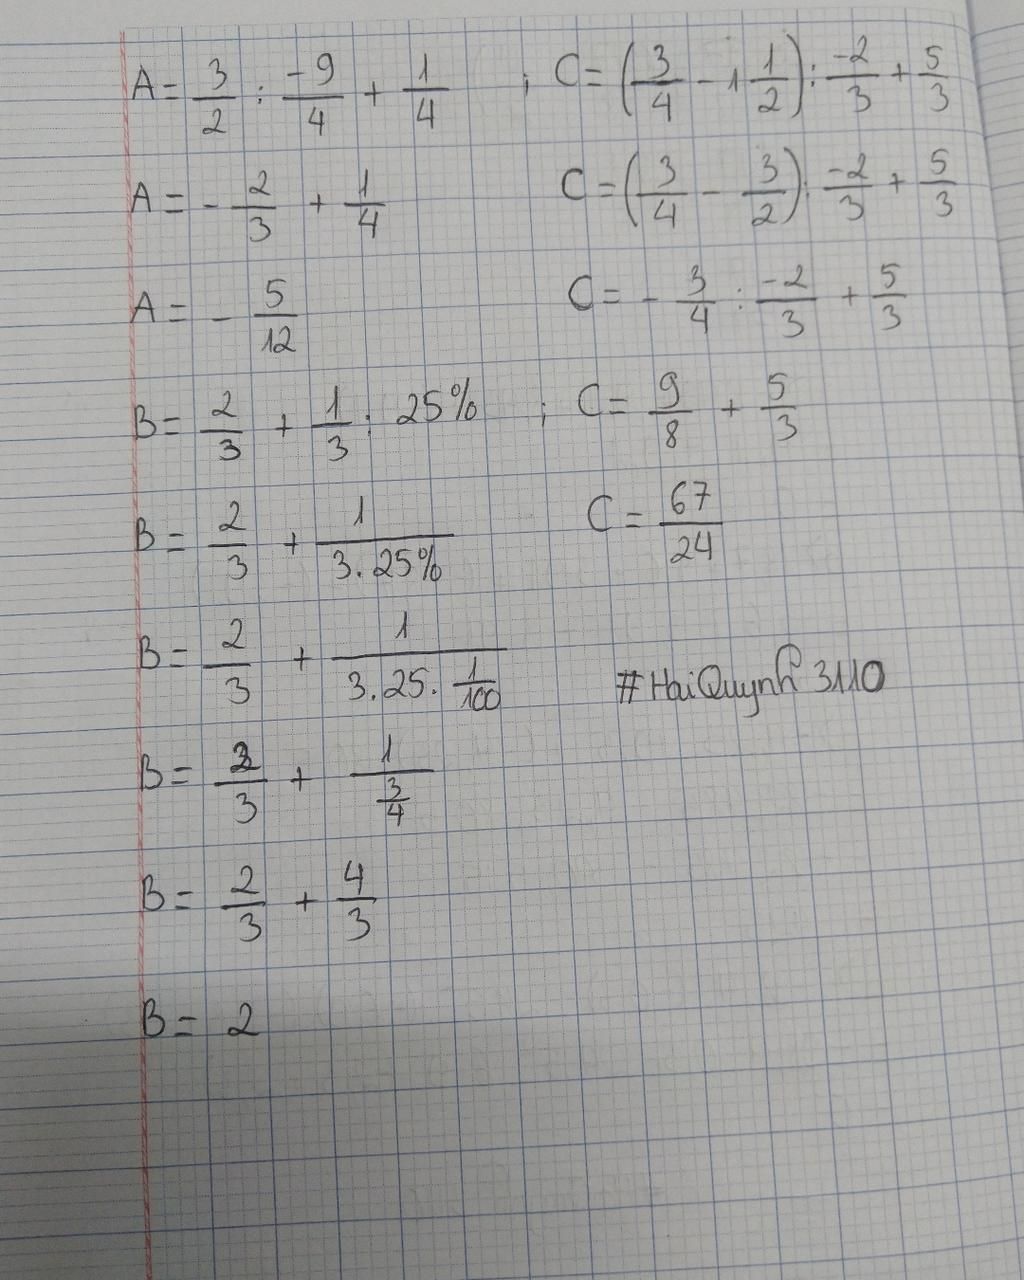 A = 3/2 : -9/4 + 1/4 ; C = (3/4 - 1 1/2) : -2/3 + 5/3
A = - 2/3 + 1/4 C = (3/4 - 3/2) : -2/3 + 5/3
A = - 5/12 C = - 3/4 : -2/3 + 5/3
B = 2/3 + 1/3 : 25% ; C = 9/8 + 5/3
B = 2/3 + 1/(3.25%) C = 67/24
B = 2/3 + 1/(3.25.1/100) #HaiQuynh 3110
B = 2/3 + 1/(3/4)
B = 2/3 + 4/3
B = 2